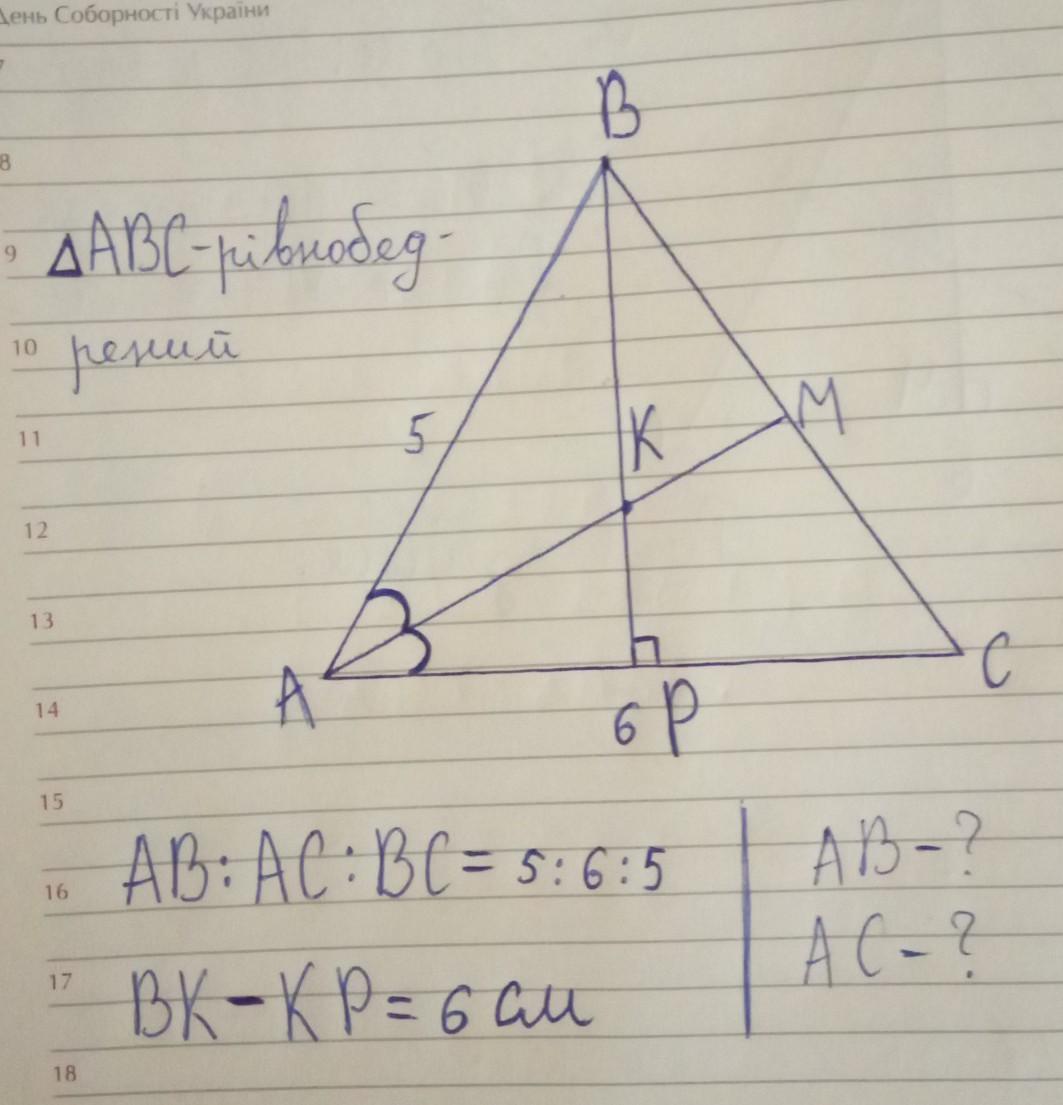 День Соборності України
7
B
8
9 ΔABC-рівнобед-
10 рений
5
11
K
M
12
13
A
C
14
6 P
15
AB:AC:BC=5:6:5
AB-?
16
AC-?
17
BK-KP=6 см
18